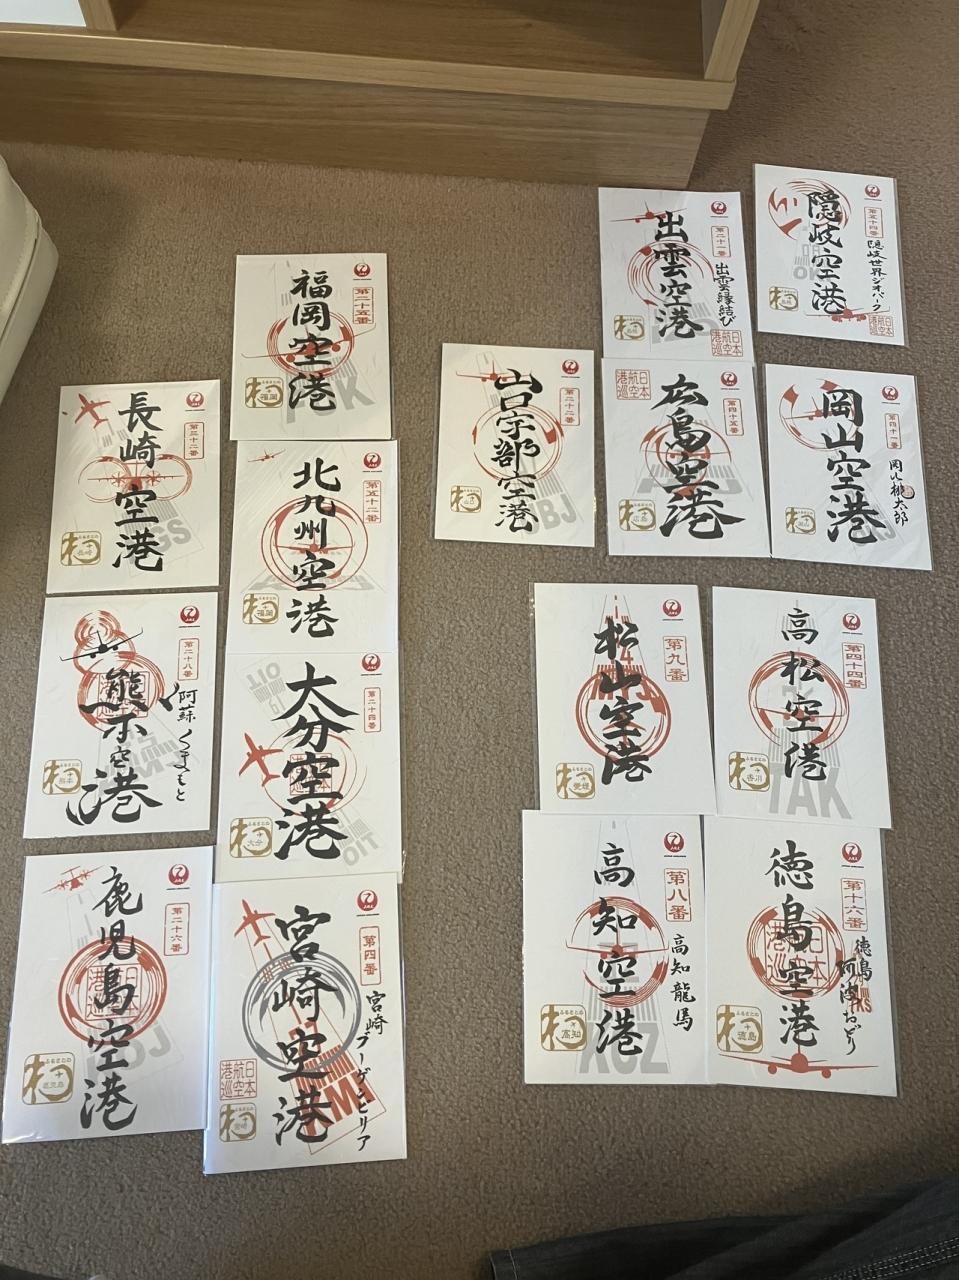 福岡空港
第二十五番
福岡
長崎空港
第三十二番
長崎
北九州空港
第五十二番
福岡
熊本空港
第二十八番
阿蘇くまもと
熊本
大分空港
第二十四番
大分
OIT
鹿児島空港
第二十六番
鹿児島
宮崎空港
第四番
宮崎ブーゲンビリア
日本航空港巡
宮崎
出雲空港
第二十一番
出雲縁結び
日本航空港巡
隠岐空港
第五十四番
隠岐世界ジオパーク
山口宇部空港
第二十二番
UBJ
広島空港
第四十五番
日本航空港巡
広島
岡山空港
第四十一番
岡山桃太郎
岡山
松山空港
第九番
愛媛
高松空港
第四十四番
香川
TAK
高知空港
第八番
高知龍馬
高知
KCZ
徳島空港
第十六番
徳島阿波おどり
徳島